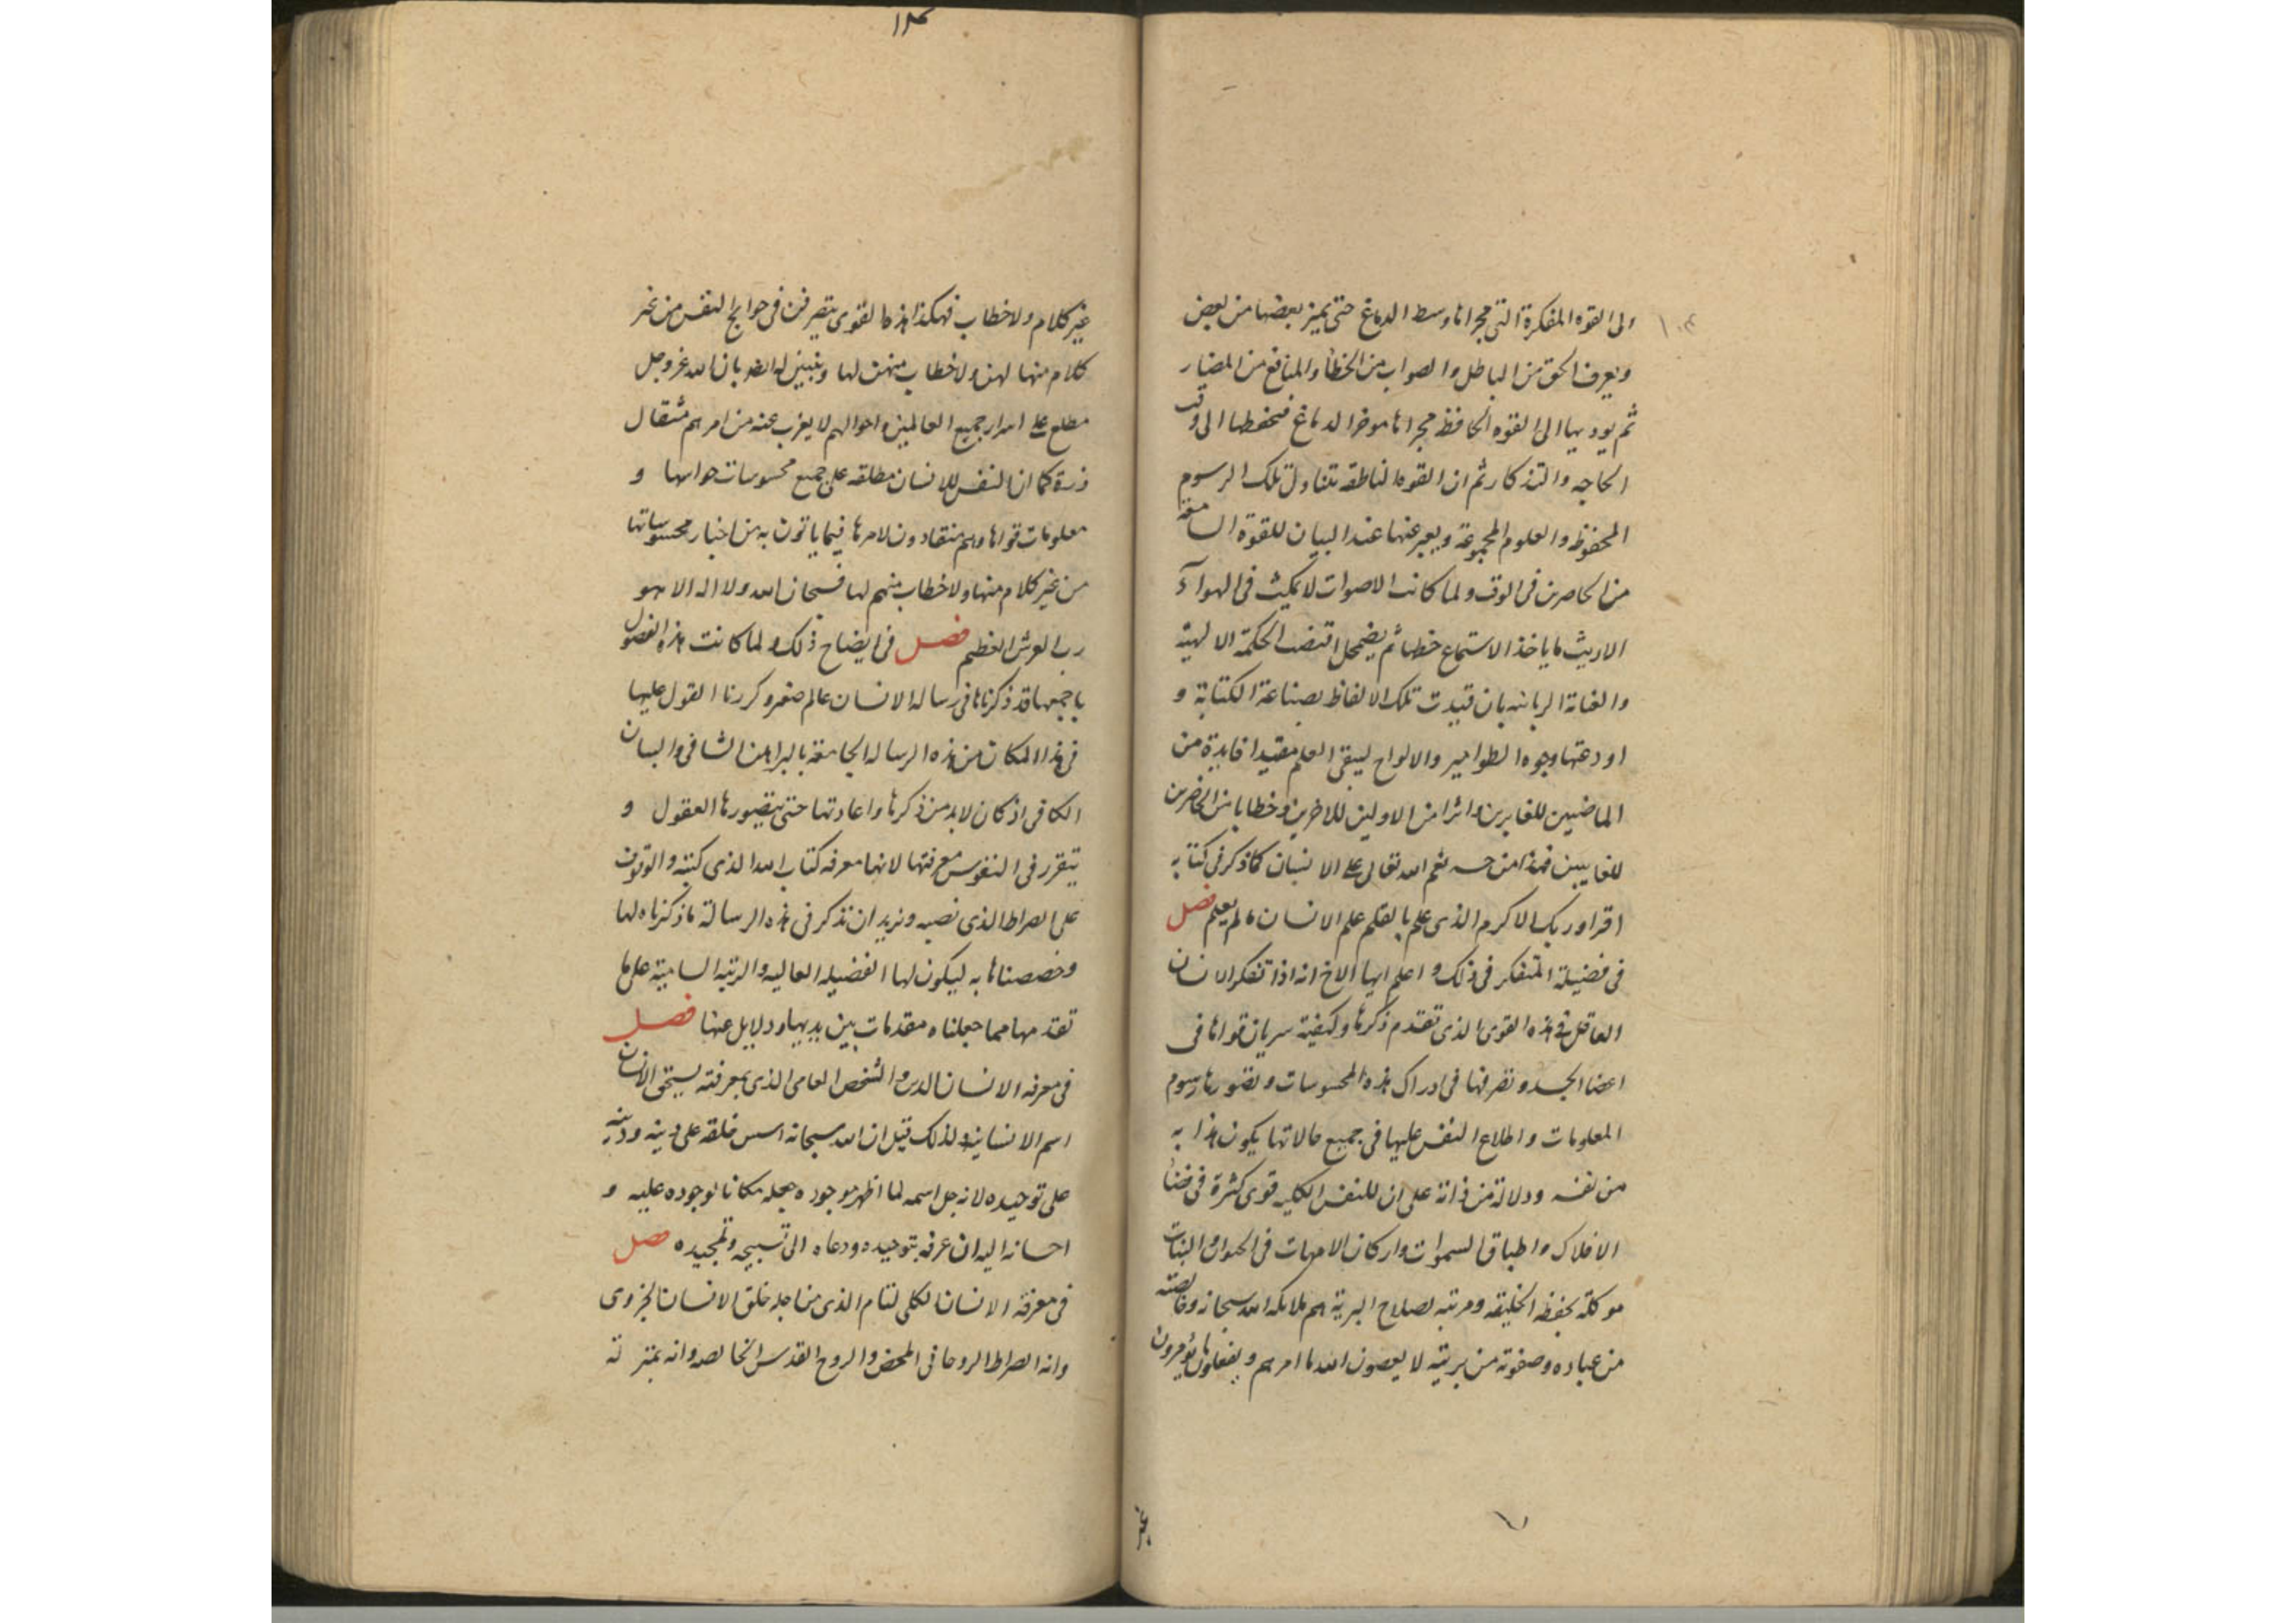 الى القوه المفكرة التى مجراها وسط الدماغ حتى يميز بعضها من بعض
ويعرف الحق من الباطل والصواب من الخطأ والمنافع من المضار
ثم يوديها الى القوه الحافظه مجراها موخر الدماغ فتحفظها الى وقت
الحاجه والتذكار ثم ان القوه الناطقه تتناول تلك الرسوم
المحفوظه والعلوم المجموعة ويعبر عنها عند البيان للقوة السامعة
من الحاضرين فى الوقت ولما كانت الاصوات لا تمكث فى الهوآء
الا ريث ما ياخذ الاستماع حظها ثم يضمحل اقتضت الحكمة الالهية
والعناية الربانيه بان قيدت تلك الالفاظ بصناعة الكتابة و
اودعتها وجوه الطوامير والالواح ليبقى العلم مقيدا فايدة من
الماضيين للغابرين واثرا من الاولين للاخرين وخطابا من الحاضرين
للغايبين فهذا من نعم الله تعالى على الانسان كما ذكر فى كتابه
اقرا وربك الاكرم الذى علم بالقلم علم الانسان ما لم يعلم فصل
فى فضيلة المتفكر فى ذلك واعلم ايها الاخ انه اذا تفكر الانسان
العاقل فى هذه القوى الذى تقدم ذكرها وكيفية سريان قواها فى
اعضا الجسد وتصرفها فى ادراك هذه المحسوسات وتصورها رسوم
المعلومات واطلاع النفس عليها فى جميع حالاتها يكون هذا به
من نفسه ودلالة من ذاته على ان للنفس الكليه قوى كثرة فى فضا
الافلاك واطباق السموات واركان الامهات فى الحيوان والنبات
موكلة بحفظ الخليقه ومرتبه لصلاح البرية هم ملايكه الله سبحانه وخالصته
من عباده وصفوته من بريته لا يعصون الله ما امرهم ويفعلون ما يؤمرون
غير
١٠٤
غير كلام ولا خطاب فهكذا هذه القوى يتصرفن فى حوايج النفس من غير
كلام منها لهن ولا خطاب منهن لها ويتبين له ايضا بان الله عز وجل
مطلع على اسرار جميع العالمين واحوالهم لا يعزب عنه من امرهم مثقال
ذرة كما ان النفس للانسان مطلقه على جميع محسوسات حواسها و
معلومات قواها وهم منقادون لامرها فيما ياتون به من اخبار محسوساتها
من غير كلام منها ولا خطاب منهم لها فسبحان الله ولا اله الا هو
رب العرش العظيم فصل فى ايضاح ذلك ولما كانت هذه الفصول
باجمعها قد ذكرناها فى رساله الانسان عالم صغير وكررنا القول عليها
فى هذا المكان من هذه الرساله الجامعة بالبراهين الشافى والبيان
الكافى اذ كان لابد من ذكرها واعادتها حتى يتصورها العقول و
يتقرر فى النفوس معرفتها لانها معرفه كتاب الله الذى كتبه والوقوف
على الصراط الذى نصبه ونريد ان نذكر فى هذه الرسالة ما ذكرناه لها
وخصصناها به ليكون لها الفضيله العاليه والرتبه السامية على ما
تقدمها مما جعلناه مقدمات بين يديها ودلايل عنها فصل
فى معرفه الانسان والشخص العامى الذى بمعرفته يستحق الانسان
اسم الانسانيه ولذلك قيل ان الله سبحانه اسس خلقه على دينه ودينه
على توحيده لانه جل اسمه لما اظهر موجوده جعله مكانا لوجوده عليه و
احسانه اليه ان عرفه بتوحيده ودعاه الى تسبيحه وتمجيده فصل
فى معرفة الانسان الكلى التام الذى من اجله خلق الانسان الجزوى
وانه الصراط الروحانى المحض والروح القدس الخالصه وانه بمنزلة